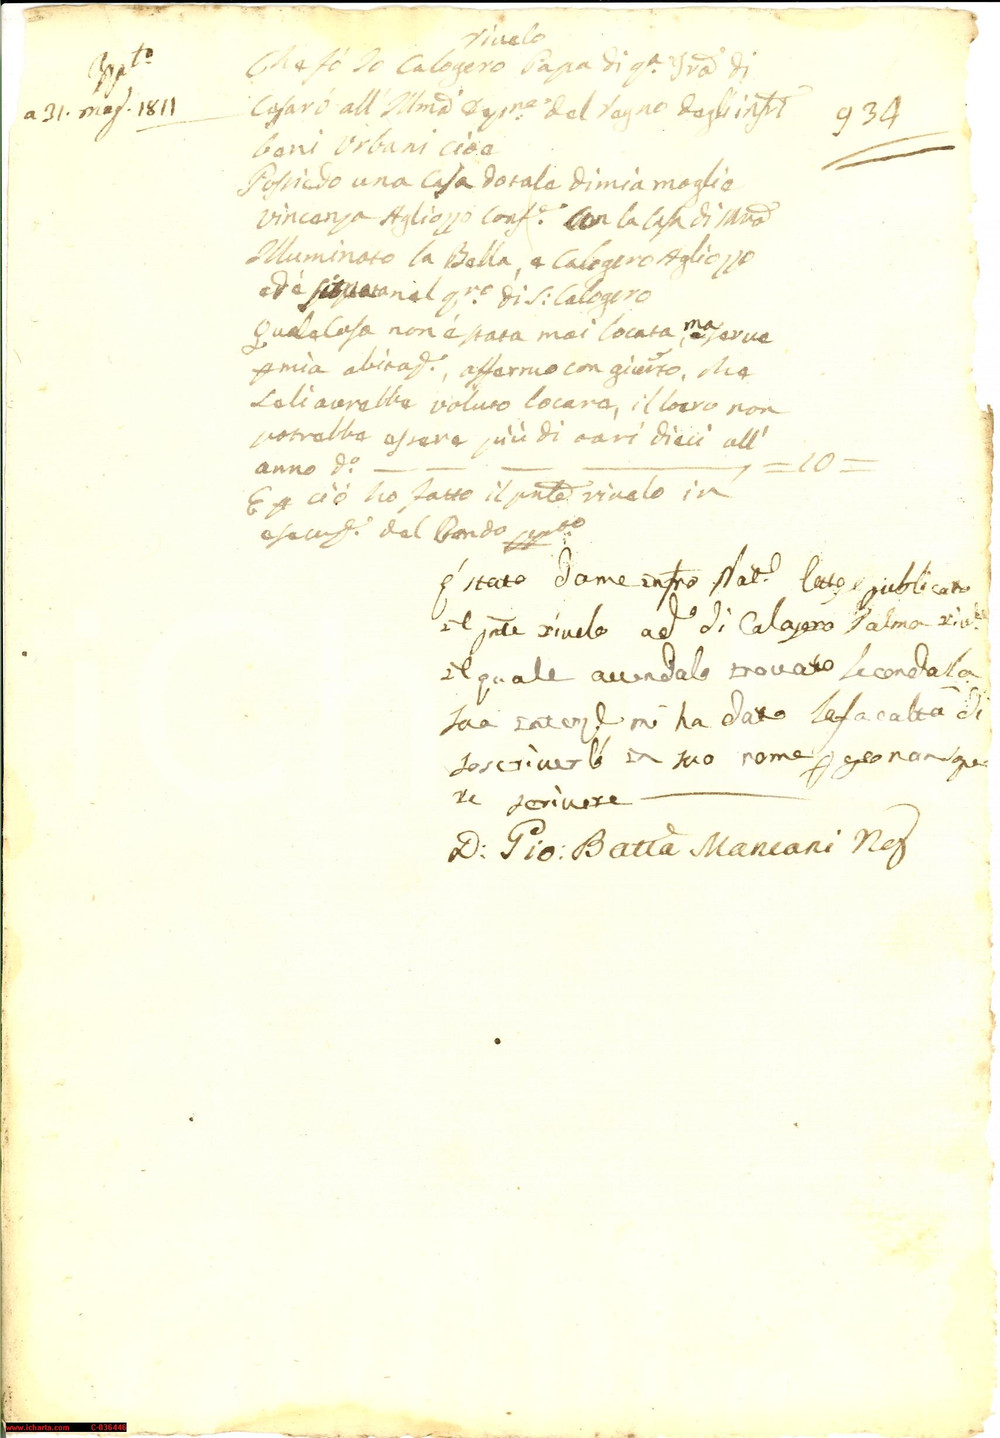 rivelo
Pnto
a 31. mag. 1811
Che fò Io Calogero Papa di qa. Trã di
Cesarò all' Illmã del regno degl'infri
beni Urbani cioè
934
Possiedo una casa dotale di mia moglie
Vincenza Agliozzo Conf.e con la Casa di Mrõ
Illuminato la Bella, e Calogero Agliozzo
ed è nel qro di S: Calogero
Quale Casa non è stata mai locata, ma serve
p mia abitaz.e, affermo con giuřto, che
se li averebbe voluto locare, il loero non
potrebbe essere più di tarì dieci all'
anno d.o =10=
E p ciò ho fatto il pnte rivelo in
esecuz.e del Bando
È stato da me infro Not.o letto e publicato
il pnte rivelo ad.o di Calogero Palma riv.te
il quale avendolo trovato secondo la
sua intenz.e mi ha dato la facoltà di
soscriverlo in suo nome p egeo non sape
re scrivere
D: Gio: Batta Mancani Nor
www.icharta.com C-036446